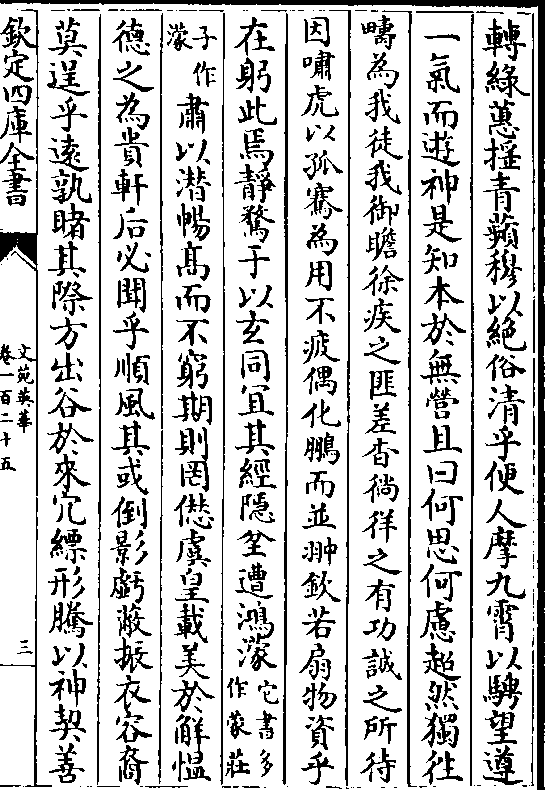 轉綠蕙揺青蘋穆以絶俗清乎便人摩九霄以騁望遵
一氣而遊神是知本於無營且曰何思何慮超然獨往
疇為我徒我御瞻徐疾之匪差杳徜徉之有功誠之所待
因嘯虎以孤騫為用不疲偶化鵬而並翀欽若扇物資乎
在躬此焉靜騖于以玄同宜其經隠坌遭鴻濛它書多作蒙莊
子作濛肅以潛暢髙而不窮期則罔愆虞皇載美於解愠
德之為貴軒后必聞乎順風其或倒影虧蔽振衣容裔
莫逞乎遠孰睹其際方出谷於來宂縹形騰以神契善
欽定四庫全書
文苑英華
卷一百二十五
三